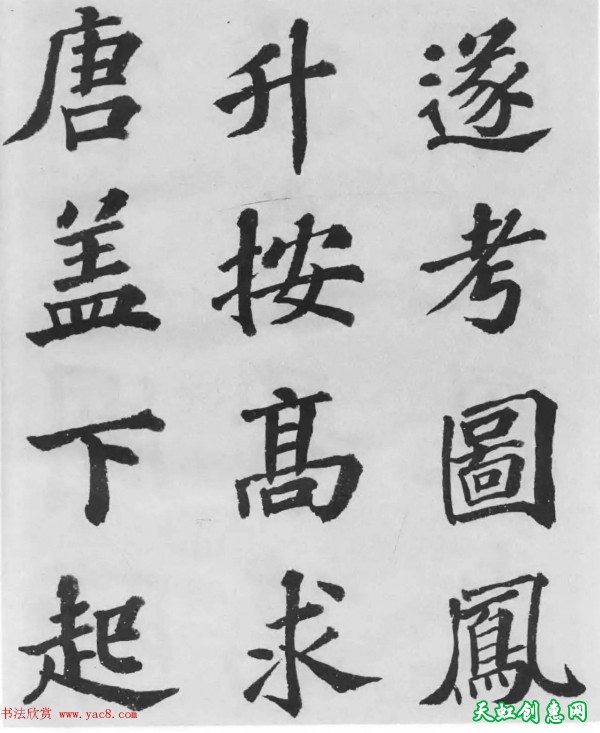 遂考圖鳳
升按髙求
唐盖下起
书法欣赏 www.yac8.com
天虹创惠网